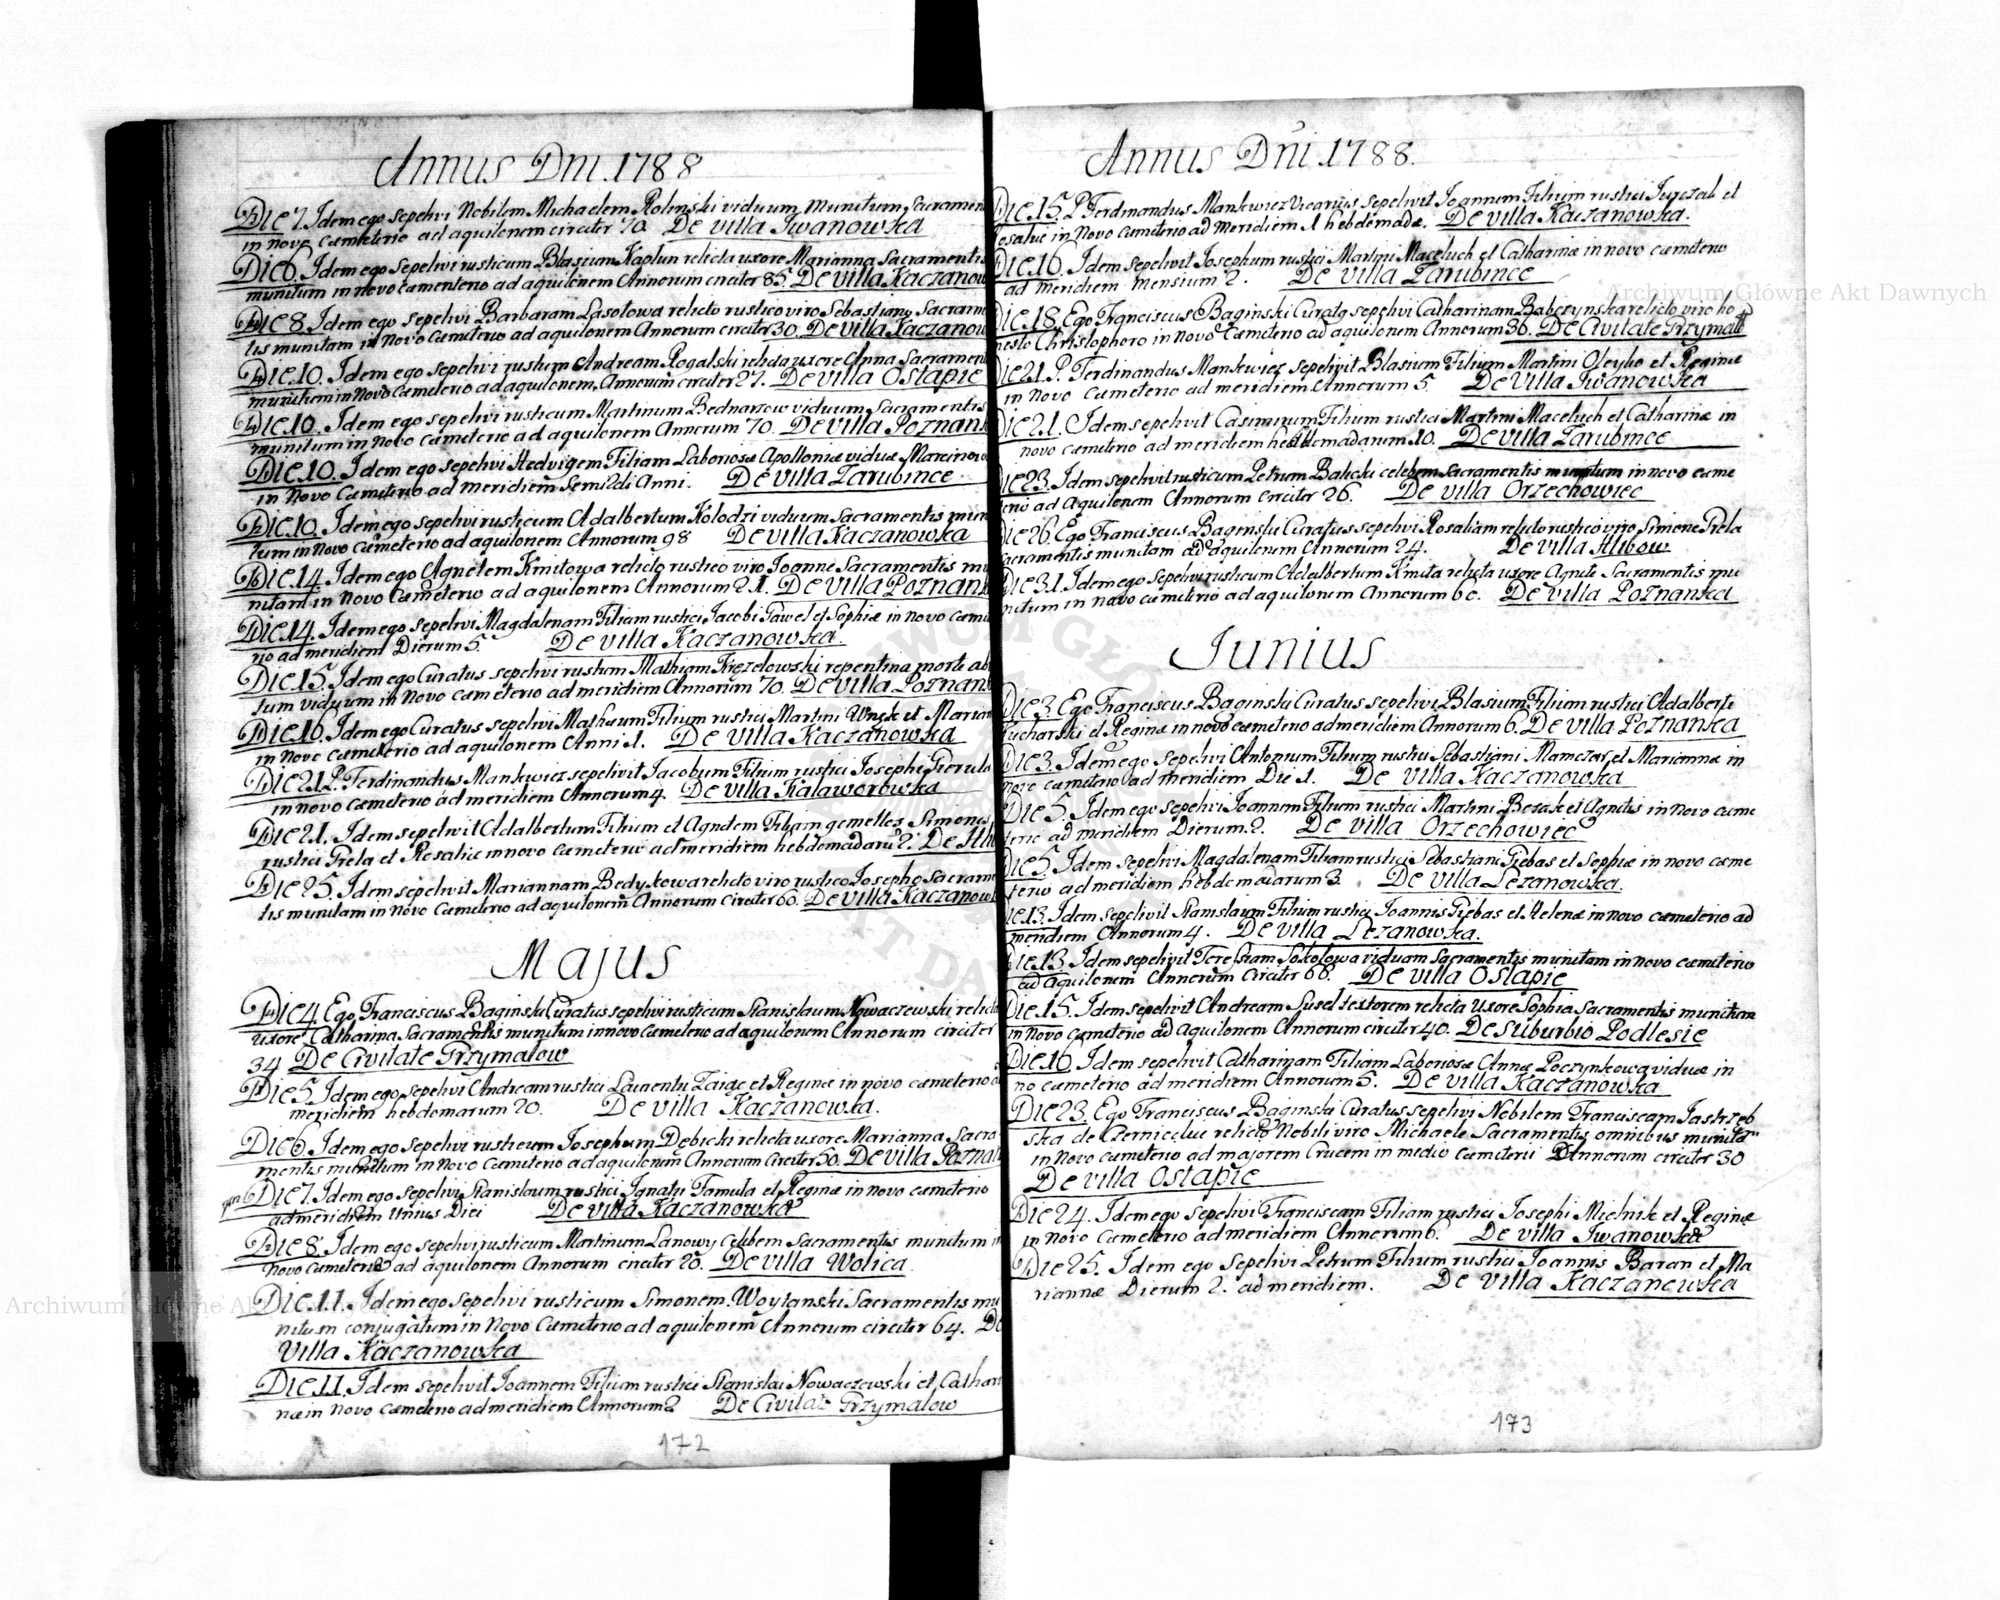 Annus Dni. 1788
Die 7. Idem ego sepelivi Nobilem Michaelem Rolinski viduum munitum Sacramen
in novo Cæmeterio ad aquilonem circiter 70. De villa Iwanowka
Die 6. Idem ego sepelivi rusticum Blasium Kaplun relicta uxore Marianna Sacramentis
munitum in novo Cæmenterio ad aquilonem Annorum circiter 85. De villa Kaczanow
Die 8. Idem ego sepelivi Barbaram Lasotowa relicto rustico viro Sebastiano Sacramen
tis munitam in Novo Cæmeterio ad aquilonem Annorum circiter 30. De villa Kaczanow
Die 10. Idem ego sepelivi rustum Andream Rogalski relicta uxore Anna Sacrament
munitum in Novo Cæmeterio ad aquilonem Annorum circiter 27. De villa Ostapie
Die 10. Idem ego sepelivi rusticum Martinum Bednarzow viduum Sacramentis
munitum in Novo Cæmeterio ad aquilonem Annorum 70. De villa Poznank
Die 10. Idem ego sepelivi Hedvigem Filiam Laboriosæ Apolloniæ viduæ Marcinow
in Novo Cæmeterio ad meridiem Semi 2di Anni. De villa Zarubince
Die 10. Idem ego sepelivi rusticum Adalbertum Kolodzi viduum Sacramentis muni
tum in Novo Cæmeterio ad aquilonem Annorum 98 De villa Kaczanowka
Die 14. Idem ego Agnetem Kmitowa relicto rustico viro Joanne Sacramentis mu
nitam in Novo Cæmeterio ad aquilonem Annorum 21. De villa Poznank
Die 14. Idem ego sepelivi Magdalenam Filiam rustici Jacobi Pawel et Sophiæ in novo Cæme
rio ad meridiem Dierum 5. De villa Kaczanowska.
Die 15. Idem ego Curatus sepelivi rustum Mathiam Krezelowski repentina morte ab
tum viduum in Novo cæmeterio ad meridiem Annorum 70. De villa Poznan
Die 16. Idem ego Curatus sepelivi Mathæum Filium rustici Martini Wnek et Marian
in Novo cæmeterio ad aquilonem Anni 1. De villa Kaczanowka
Die 21. P. Ferdinandus Mankiewicz sepelivit Jacobum Filium rustici Josephi Gierula
in novo Cæmeterio ad meridiem Annorum 4. De villa Kalaworowka
Die 21. Idem sepelivit Adalbertum Filium et Agnetem Filiam gemelles Simones
rustici Grela et Rosaliæ in novo Cæmeterio ad meridiem hebdomadarū 2. De Hli
Die 25. Idem sepelivit Mariannam Bedykowa relicto viro rustico Josepho Sacrame
tis munitam in Novo Cæmeterio ad aquilonem Annorum circiter 60. De villa Kaczanow
Majus
Die 4 Ego Franciscus Baginski Curatus sepelivi rusticum Stanislaum Nowaczewski relicta
uxore Catharina Sacramentis munitum in novo Cæmeterio ad aquilonem Annorum circiter
34 De Civitate Grzymalow
Die 5. Idem ego Sepelivi Andream rustici Laurentii Zaigc et Reginæ in novo cæmeterio a
meridiem hebdomarum 20. De villa Kaczanowka.
Die 6. Idem ego sepelivi rusticum Josephum Debicki relicta uxore Marianna Sacra
mentis munitum in Novo Cæmeterio ad aquilonem Annorum circiter 50. De villa Poznan
Die 7. Idem ego sepelivi Stanislaum rustici Ignatii Famula et Reginæ in novo cæmeterio
ad meridiem Unius Diei De villa Kaczanowka
Die 8. Idem ego sepelivi rusticum Martinum Lanowy Celibem Sacramentis munitum in
Novo cæmeterio ad aquilonem Annorum circiter 20. De villa Wolica.
Die 11. Idem ego sepelivi rusticum Simonem Woytanski Sacramentis mu
nitum conjugatum in Novo Cæmeterio ad aquilonem Annorum circiter 64. De
Villa Kaczanowka
Die 11. Idem sepelivit Joannem Filium rustici Stanislai Nowaczewski et Cathari
næ in Novo Cæmeterio ad meridiem Annorum 2 De Civitate Grzymalow
172
Annus Dni. 1788.
Die 15. P. Ferdinandus Mankiewicz Vicarius sepelivit Joannem Filium rustici Jurczak et
Rosaliæ in Novo Cæmeterio ad Meridiem 1 hebdemadæ. De villa Kaczanowka.
Die 16. Idem Sepelivit Josephum rustici Martini Maceluch et Catharinæ in novo cæmeterio
ad Meridiem Mensium 2. De villa Zarubince
Die 18. Ego Franciscus Baginski Curatq sepelivi Catharinam Babczynska relicto viro ho
nesto Christophoro in Novo Cæmeterio ad aquilonem Annorum 36. De Civitate Grzymalo
Die 21. P. Ferdinandus Mankiewicz sepelivit Blasium Filium Martini Oleyko et Reginæ
in Novo Cæmeterio ad meridiem Annorum 5 De villa Iwanowka
Die 21. Idem sepelivit Casimirum Filium rustici Martini Maceluch et Catharinæ in
novo cæmeterio ad meridiem hebdemadarum 10. De villa Zarubince
Die 23. Idem sepelivit rusticum Petrum Balicki celebem Sacramentis munitum in novo cæme
terio ad Aquilonem Annorum circiter 26. De villa Orzechowiec
Die 26. Ego Franciscus Baginski Curatus sepelivi Rosaliam relicto rustico viro Simone Grela
Sacramentis munitam ad aquilonem Annorum 24. De villa Hlibow
Die 31. Idem ego sepelivi rusticum Adalbertum Kmita relicta uxore Agnete Sacramentis mu
nitum in novo cæmeterio ad aquilonem Annorum 60. De villa Poznanka
Junius
Die 3 Ego Franciscus Baginski Curatus sepelivi Blasium Filium rustici Adalberti
Kucharski et Reginæ in novo cæmeterio ad meridiem Annorum 6. De villa Poznanka
Die 3. Idem ego Sepelivi Antonium Filium rustici Sebastiani Mamczar et Mariannæ in
novo cæmeterio ad meridiem Die 1. De villa Kaczanowka
Die 5. Idem ego sepelivi Joannem Filium rustici Martini Bezak et Agnetis in Novo cæme
terio ad meridiem Dierum 2. De villa Orzechowiec
Die 5. Idem sepelivi Magdalenam Filiam rustici Sebastiani Giebas et Sophiæ in novo cæme
terio ad meridiem hebdemadarum 3. De villa Lezanowka.
Die 13. Idem sepelivit Stanislaum Filium rustici Joannis Giebas et Helenæ in novo cæmeterio ad
meridiem Annorum 4. De villa Lezanowka.
Die 13. Idem sepelivit Teresiam Sokolowa viduam Sacramentis munitam in novo cæmeterio
ad aquilonem Annorum circiter 66. De villa Ostapie
Die 15. Idem sepelivit Andream Susel textorem relicta Uxore Sophia Sacramentis munitum
in Novo cæmeterio ad Aquilonem Annorum circiter 40. De Suburbio Podlesie
Die 16. Idem sepelivit Catharinam Filiam Laboriosæ Annæ Poczynkowa viduæ in
no cæmeterio ad meridiem Annorum 5. De villa Kaczanowka
Die 23. Ego Franciscus Baginski Curatus sepelivi Nobilem Franciscam Jastrzeb
ska de Czernicckie relicto Nobili viro Michaele Sacramentis omnibus munitā
in Novo Cæmeterio ad majorem Crucem in medio cæmeterii Annorum circiter 30
De villa Ostapie
Die 24. Idem ego Sepelivi Franciscam Filiam rustici Josephi Mielnik et Reginæ
in Novo Cæmeterio ad meridiem Annorum 6. De villa Iwanowka
Die 25. Idem ego Sepelivi Petrum Filium rustici Joannis Baran et Ma
riannæ Dierum 2. ad meridiem. De villa Kaczanowka
173
Archiwum Główne Akt Dawnych
Archiwum Główne Akt Dawnych